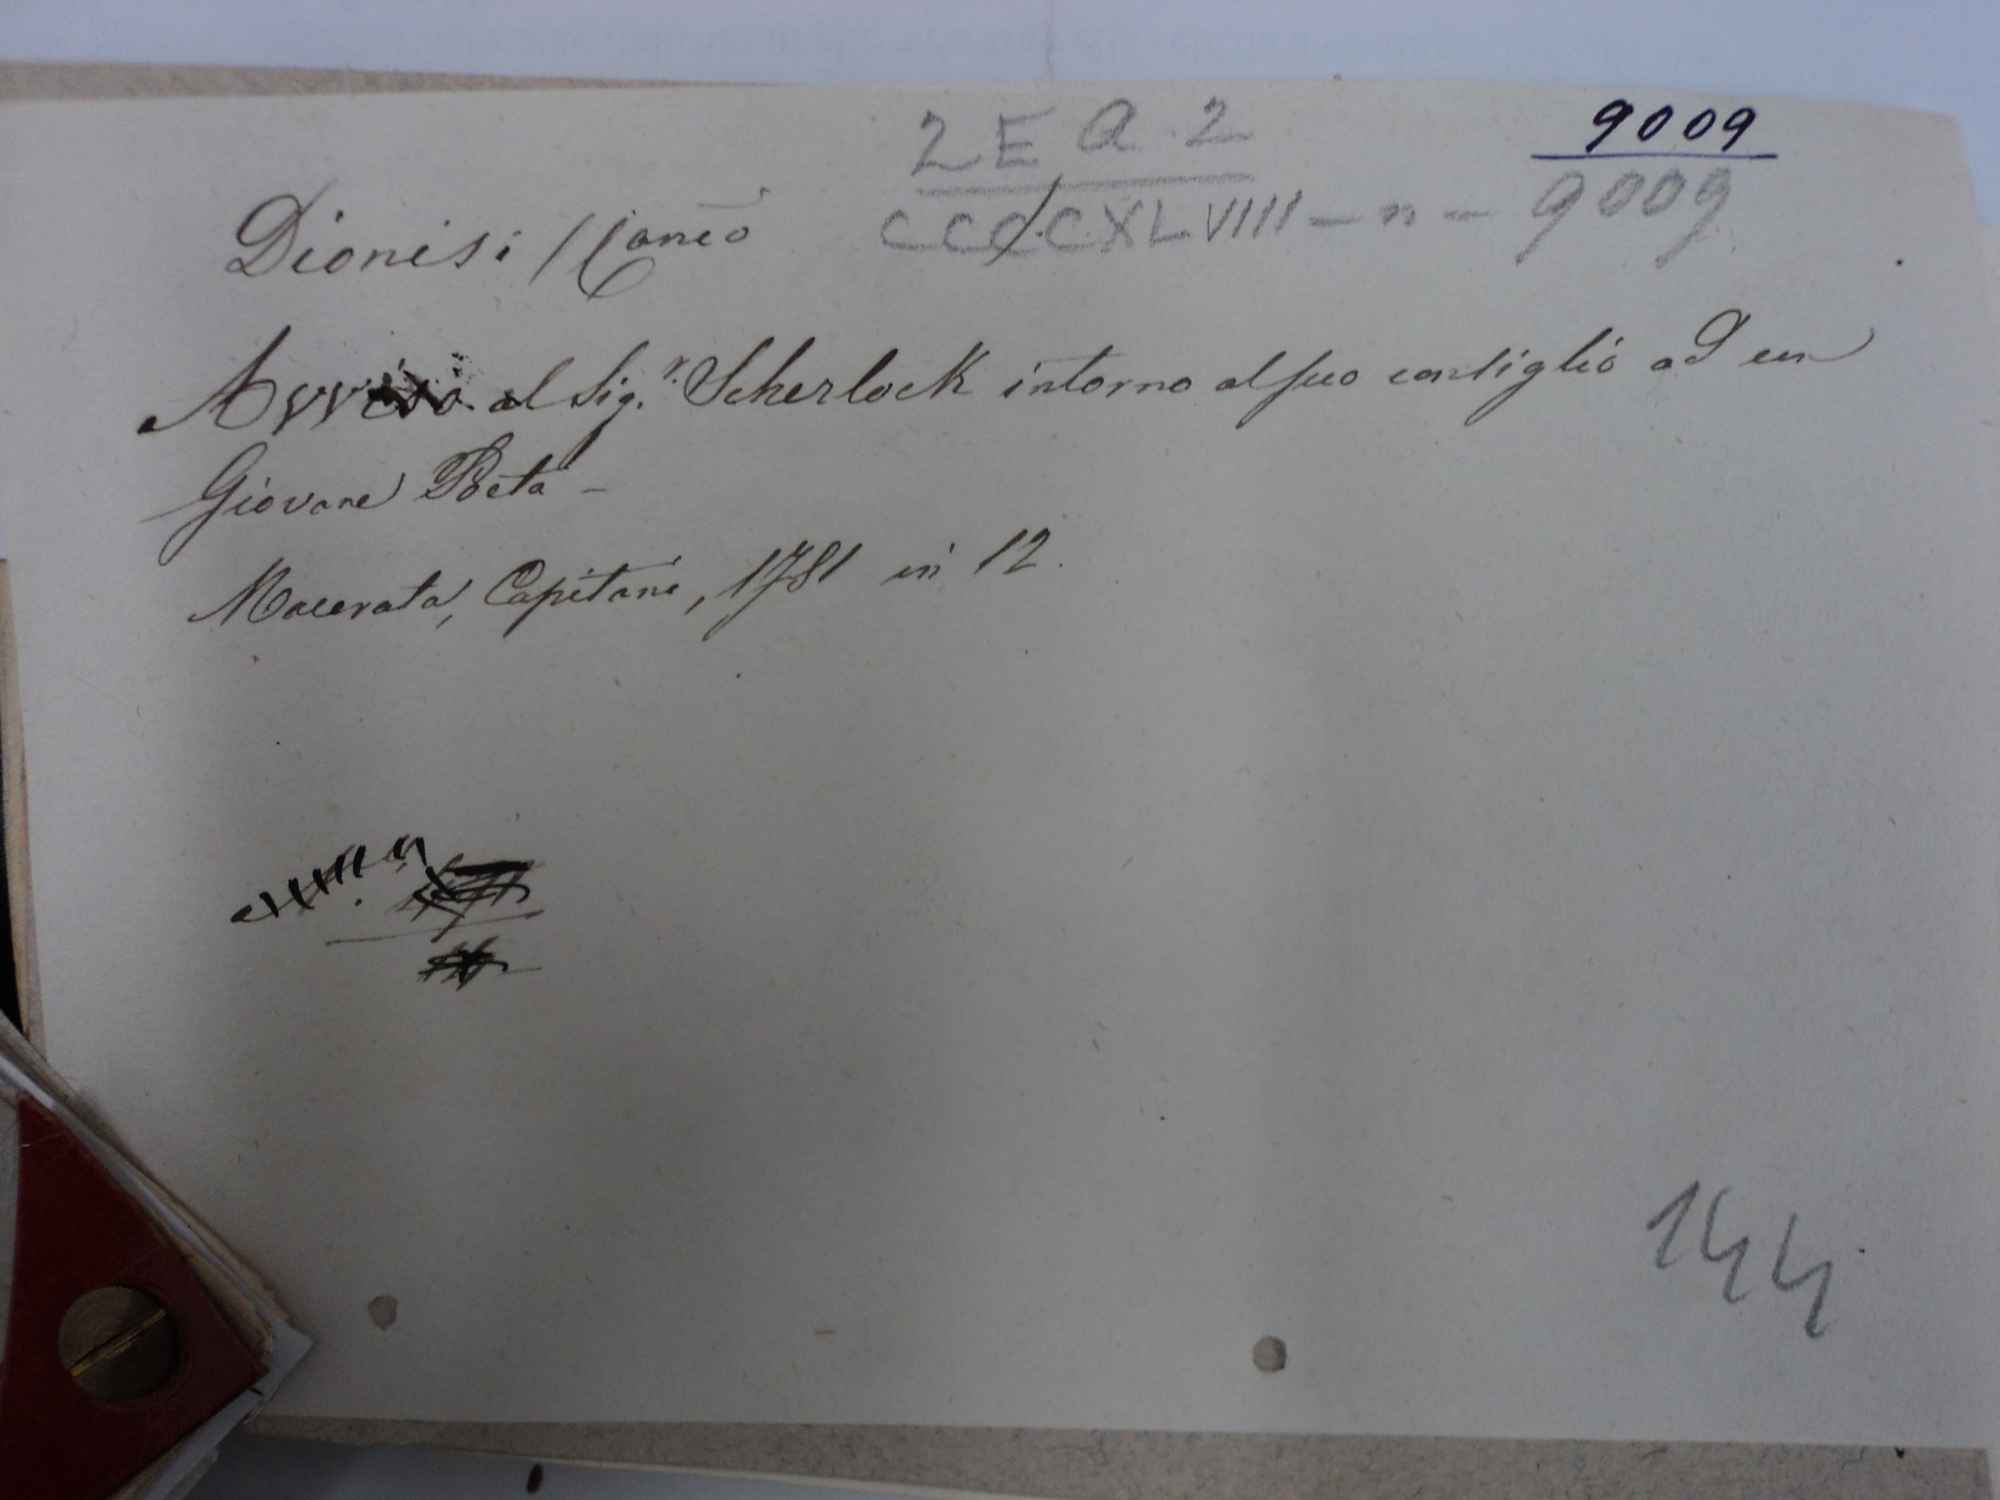 2 E Q. 2
9009
CCCCXLVIIII - n - 9009
Dionisi
Avviso al Sig.r Scherlock intorno al suo consiglio ad un
Giovane Poeta -
Macerata, Capitani, 1781 in 12.
144